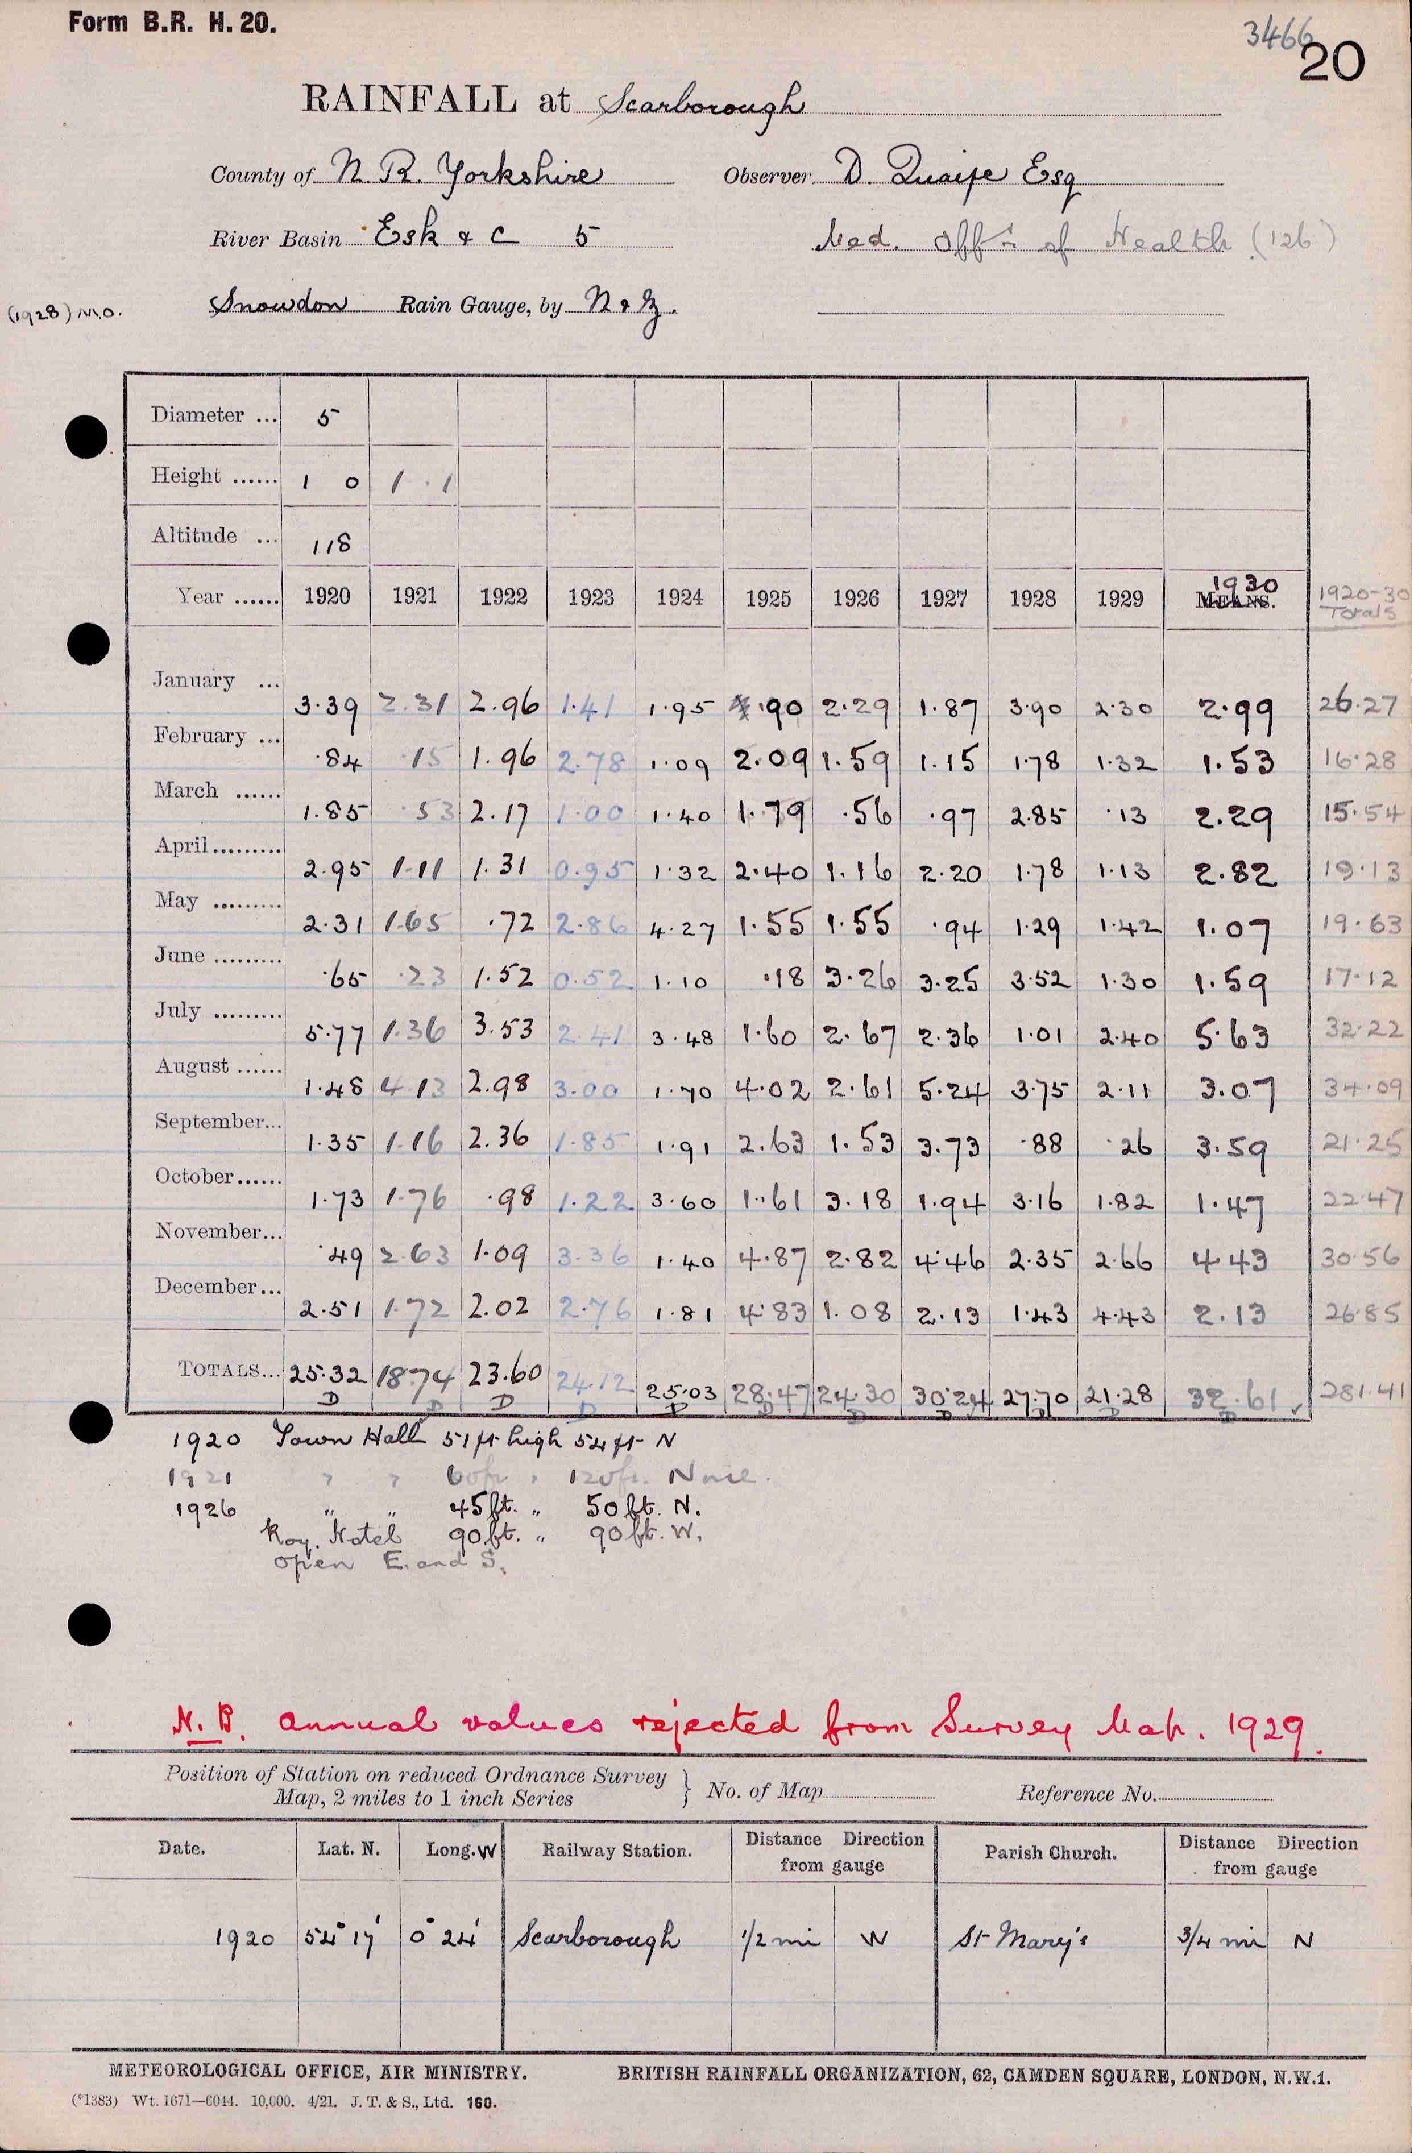 Form B.R. H. 20.
3466
20
RAINFALL at Scarborough
County of N. R. Yorkshire Observer D. Quaife Esq
River Basin Esk & C 5 Med. Off. of Health (126)
(1928) M.O. Snowdon Rain Gauge, by N & Z.
Diameter ... 5
Height ...... 1 0 1 . 1
Altitude ... 118
Year ...... 1920 1921 1922 1923 1924 1925 1926 1927 1928 1929 MEANS. 1930 1920-30 Totals
January ... 3.39 2.31 2.96 1.41 1.95 .90 2.29 1.87 3.90 2.30 2.99 26.27
February ... .84 .15 1.96 2.78 1.09 2.09 1.59 1.15 1.78 1.32 1.53 16.28
March ...... 1.85 .53 2.17 1.00 1.40 1.79 .56 .97 2.85 .13 2.29 15.54
April......... 2.95 1.11 1.31 0.95 1.32 2.40 1.16 2.20 1.78 1.13 2.82 19.13
May ......... 2.31 1.65 .72 2.86 4.27 1.55 1.55 .94 1.29 1.42 1.07 19.63
June ......... .65 .23 1.52 0.52 1.10 .18 3.26 3.25 3.52 1.30 1.59 17.12
July ......... 5.77 1.36 3.53 2.41 3.48 1.60 2.67 2.36 1.01 2.40 5.63 32.22
August ...... 1.48 4.13 2.98 3.00 1.70 4.02 2.61 5.24 3.75 2.11 3.07 34.09
September... 1.35 1.16 2.36 1.85 1.91 2.63 1.53 3.73 .88 .26 3.59 21.25
October...... 1.73 1.76 .98 1.22 3.60 1.61 3.18 1.94 3.16 1.82 1.47 22.47
November... .49 2.63 1.09 3.36 1.40 4.87 2.82 4.46 2.35 2.66 4.43 30.56
December... 2.51 1.72 2.02 2.76 1.81 4.83 1.08 2.13 1.43 4.43 2.13 26.85
TOTALS... 25.32 18.74 23.60 24.12 25.03 28.47 24.30 30.24 27.70 21.28 32.61 ✓ 281.41
D D D D D D D D D D D
1920 Town Hall 51 ft high 54 ft N
1921 " " 60ft " 120ft. N
1926 " " 45ft. " 50ft. N.
Roy. Hotel 90ft. " 90ft. W.
open E. and S.
N.B. annual values rejected from Survey Map. 1929.
Position of Station on reduced Ordnance Survey
Map, 2 miles to 1 inch Series } No. of Map Reference No.
Date. Lat. N. Long. W Railway Station. Distance Direction from gauge Parish Church. Distance Direction from gauge
1920 54° 17' 0° 24' Scarborough 1/2 mi W St Mary's 3/4 mi N
METEOROLOGICAL OFFICE, AIR MINISTRY. BRITISH RAINFALL ORGANIZATION, 62, CAMDEN SQUARE, LONDON, N.W.1.
(*1383) Wt. 1671—6044. 10,000. 4/21. J. T. & S., Ltd. 160.